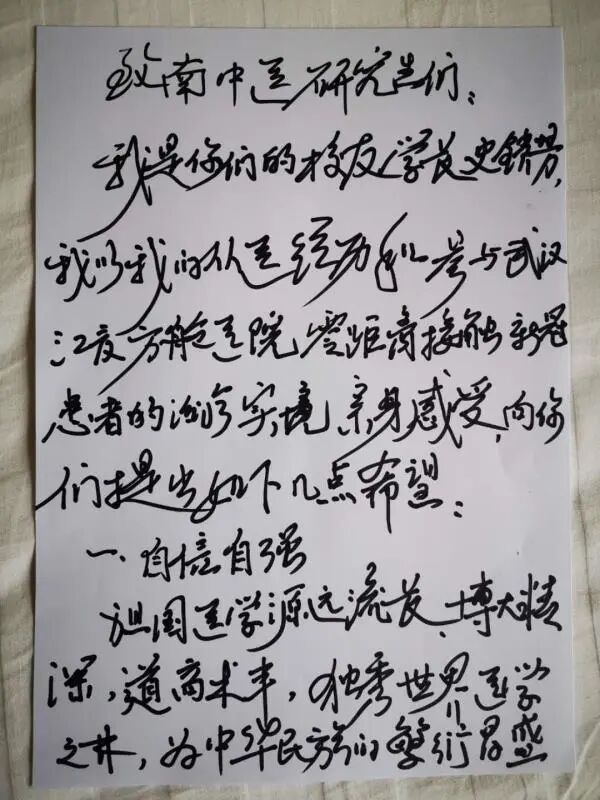 致南中医研究生们：
我是你们的校友学长史锁芳，
我以我的从医经历和参与武汉
江夏方舱医院零距离接触新冠
患者的治疗实境亲身感受，向你
们提出如下几点希望：
一、自信自强
祖国医学源远流长、博大精
深，道高术丰，独秀世界医学
之林，为中华民族的繁衍昌盛